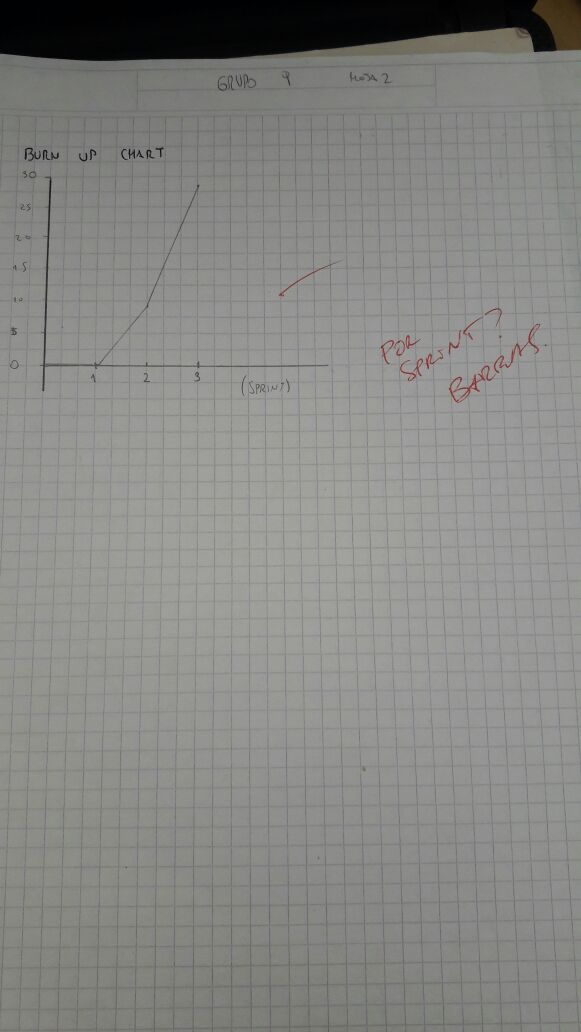 GRUPO 9 HOJA 2
BURN UP CHART
30
25
20
15
10
5
0
1 2 3
(SPRINT)
POR
SPRINT?
BARRAS.